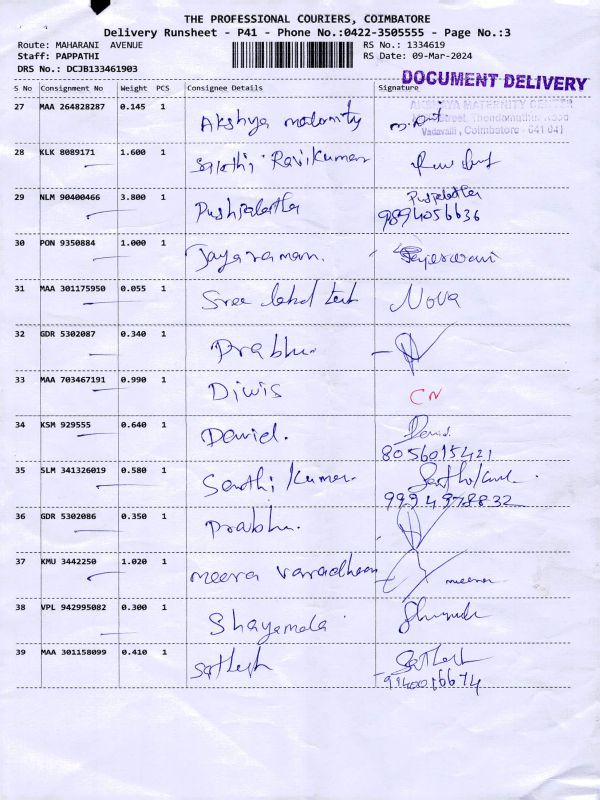 THE PROFESSIONAL COURIERS, COIMBATORE
Delivery Runsheet - P41 - Phone No.:0422-3505555 - Page No.:3
Route: MAHARANI AVENUE RS No.: 1334619
Staff: PAPPATHI RS Date: 09-Mar-2024
DRS No.: DCJB133461903
DOCUMENT DELIVERY
S No Consignment No Weight PCS Consignee Details Signature
AKSHAYA MATERNITY CENTER
27 MAA 264828287 0.145 1 Akshya maternity
Vadavalli, Coimbatore - 641 041
28 KLK 8089171 1.600 1 Ravikumar
29 NLM 90400466 3.800 1 Pushpalatha Pushpalatha
9894056636
30 PON 9350884 1.000 1 Jayaraman. Rajeswari
31 MAA 301175950 0.055 1 Sree Nova
32 GDR 5302087 0.340 1 Prabhu.
33 MAA 703467191 0.990 1 Diwis CN
34 KSM 929555 0.640 1 David. David
8056015421
35 SLM 341326019 0.580 1 Senthi Kumar
9994978832
36 GDR 5302086 0.350 1 Prabhu.
37 KMU 3442250 1.020 1 meera varadhean meena
38 VPL 942995082 0.300 1 Shayamala
39 MAA 301158099 0.410 1 Sathesh Sathesh
9940016674